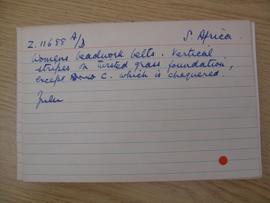 Z. 11699 A/D S. Africa.
Womens beadwork belts. Vertical
stripes on twisted grass foundation,
except C. which is chequered.
Zulu